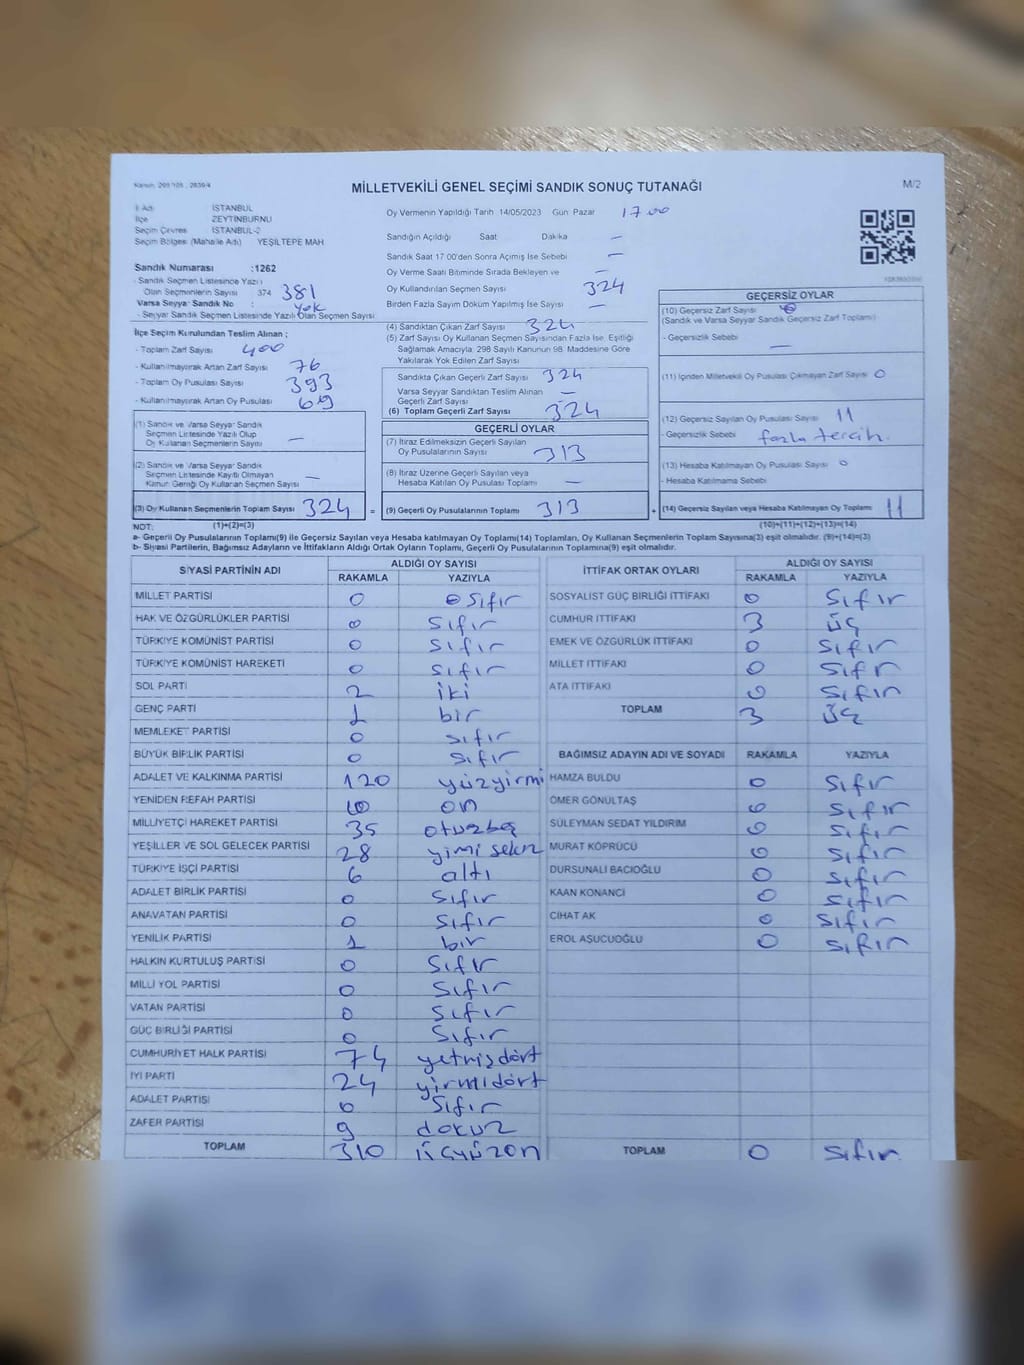 MİLLETVEKİLİ GENEL SEÇİMİ SANDIK SONUÇ TUTANAĞI
M/2
İl Adı : İSTANBUL
İlçe : ZEYTİNBURNU
Seçim Çevres : İSTANBUL-2
Seçim Bölgesi (Mahalle Adı) YEŞİLTEPE MAH
Sandık Numarası :1262
- Sandık Seçmen Listesinde Yazılı
Olan Seçmenlerin Sayısı 374 381
Varsa Seyyar Sandık No : Yok
- Seyyar Sandık Seçmen Listesinde Yazılı Olan Seçmen Sayısı
İlçe Seçim Kurulundan Teslim Alınan ;
- Toplam Zarf Sayısı 400
- Kullanılmayarak Artan Zarf Sayısı 76
- Toplam Oy Pusulası Sayısı 393
- Kullanılmayarak Artan Oy Pusulası 69
(1) Sandık ve Varsa Seyyar Sandık
Seçmen Listesinde Yazılı Olup
Oy Kullanan Seçmenlerin Sayısı —
(2) Sandık ve Varsa Seyyar Sandık
Seçmen Listesinde Kayıtlı Olmayan
Kanun Gereği Oy Kullanan Seçmen Sayısı —
(3) Oy Kullanan Seçmenlerin Toplam Sayısı 324 =
Oy Vermenin Yapıldığı Tarih 14/05/2023 Gün: Pazar 17.00
Sandığın Açıldığı Saat Dakika —
Sandık Saat 17.00'den Sonra Açılmış İse Sebebi —
Oy Verme Saati Bitiminde Sırada Bekleyen ve —
Oy Kullandırılan Seçmen Sayısı 324
Birden Fazla Sayım Döküm Yapılmış İse Sayısı —
(4) Sandıktan Çıkan Zarf Sayısı 324
(5) Zarf Sayısı Oy Kullanan Seçmen Sayısından Fazla İse, Eşitliği
Sağlamak Amacıyla, 298 Sayılı Kanunun 98. Maddesine Göre
Yakılarak Yok Edilen Zarf Sayısı
Sandıkta Çıkan Geçerli Zarf Sayısı 324
Varsa Seyyar Sandıktan Teslim Alınan —
Geçerli Zarf Sayısı
(6) Toplam Geçerli Zarf Sayısı 324
GEÇERLİ OYLAR
(7) İtiraz Edilmeksizin Geçerli Sayılan
Oy Pusulalarının Sayısı 313
(8) İtiraz Üzerine Geçerli Sayılan veya
Hesaba Katılan Oy Pusulası Toplamı —
(9) Geçerli Oy Pusulalarının Toplamı 313 +
GEÇERSİZ OYLAR
(10) Geçersiz Zarf Sayısı
(Sandık ve Varsa Seyyar Sandık Geçersiz Zarf Toplamı)
- Geçersizlik Sebebi —
(11) İçinden Milletvekili Oy Pusulası Çıkmayan Zarf Sayısı 0
(12) Geçersiz Sayılan Oy Pusulası Sayısı 11
- Geçersizlik Sebebi fazla tercih.
(13) Hesaba Katılmayan Oy Pusulası Sayısı 0
- Hesaba Katılmama Sebebi
(14) Geçersiz Sayılan veya Hesaba Katılmayan Oy Toplamı 11
NOT: (1)+(2)=(3) (10)+(11)+(12)+(13)=(14)
a- Geçerli Oy Pusulalarının Toplamı(9) ile Geçersiz Sayılan veya Hesaba Katılmayan Oy Toplamı(14) Toplamları, Oy Kullanan Seçmenlerin Toplam Sayısına(3) eşit olmalıdır. (9)+(14)=(3)
b- Siyasi Partilerin, Bağımsız Adayların ve İttifakların Aldığı Ortak Oyların Toplamı, Geçerli Oy Pusulalarının Toplamına(9) eşit olmalıdır.
SİYASİ PARTİNİN ADI ALDIĞI OY SAYISI
RAKAMLA YAZIYLA
MİLLET PARTİSİ 0 sıfır
HAK VE ÖZGÜRLÜKLER PARTİSİ 0 sıfır
TÜRKİYE KOMÜNİST PARTİSİ 0 sıfır
TÜRKİYE KOMÜNİST HAREKETİ 0 sıfır
SOL PARTİ 2 iki
GENÇ PARTİ 1 bir
MEMLEKET PARTİSİ 0 sıfır
BÜYÜK BİRLİK PARTİSİ 0 sıfır
ADALET VE KALKINMA PARTİSİ 120 yüzyirmi
YENİDEN REFAH PARTİSİ 10 on
MİLLİYETÇİ HAREKET PARTİSİ 35 otuzbeş
YEŞİLLER VE SOL GELECEK PARTİSİ 28 yimi sekiz
TÜRKİYE İŞÇİ PARTİSİ 6 altı
ADALET BİRLİK PARTİSİ 0 sıfır
ANAVATAN PARTİSİ 0 sıfır
YENİLİK PARTİSİ 1 bir
HALKIN KURTULUŞ PARTİSİ 0 sıfır
MİLLİ YOL PARTİSİ 0 sıfır
VATAN PARTİSİ 0 sıfır
GÜÇ BİRLİĞİ PARTİSİ 0 sıfır
CUMHURİYET HALK PARTİSİ 74 yetmişdört
İYİ PARTİ 24 yirmidört
ADALET PARTİSİ 0 sıfır
ZAFER PARTİSİ 9 dokuz
TOPLAM 310 üçyüzon
İTTİFAK ORTAK OYLARI ALDIĞI OY SAYISI
RAKAMLA YAZIYLA
SOSYALİST GÜÇ BİRLİĞİ İTTİFAKI 0 sıfır
CUMHUR İTTİFAKI 3 üç
EMEK VE ÖZGÜRLÜK İTTİFAKI 0 sıfır
MİLLET İTTİFAKI 0 sıfır
ATA İTTİFAKI 0 sıfır
TOPLAM 3 üç
BAĞIMSIZ ADAYIN ADI VE SOYADI RAKAMLA YAZIYLA
HAMZA BULDU 0 sıfır
ÖMER GÖNÜLTAŞ 0 sıfır
SÜLEYMAN SEDAT YILDIRIM 0 sıfır
MURAT KÖPRÜCÜ 0 sıfır
DURSUNALİ BACIOĞLU 0 sıfır
KAAN KONANCI 0 sıfır
CİHAT AK 0 sıfır
EROL AŞUCUOĞLU 0 sıfır
TOPLAM 0 sıfır